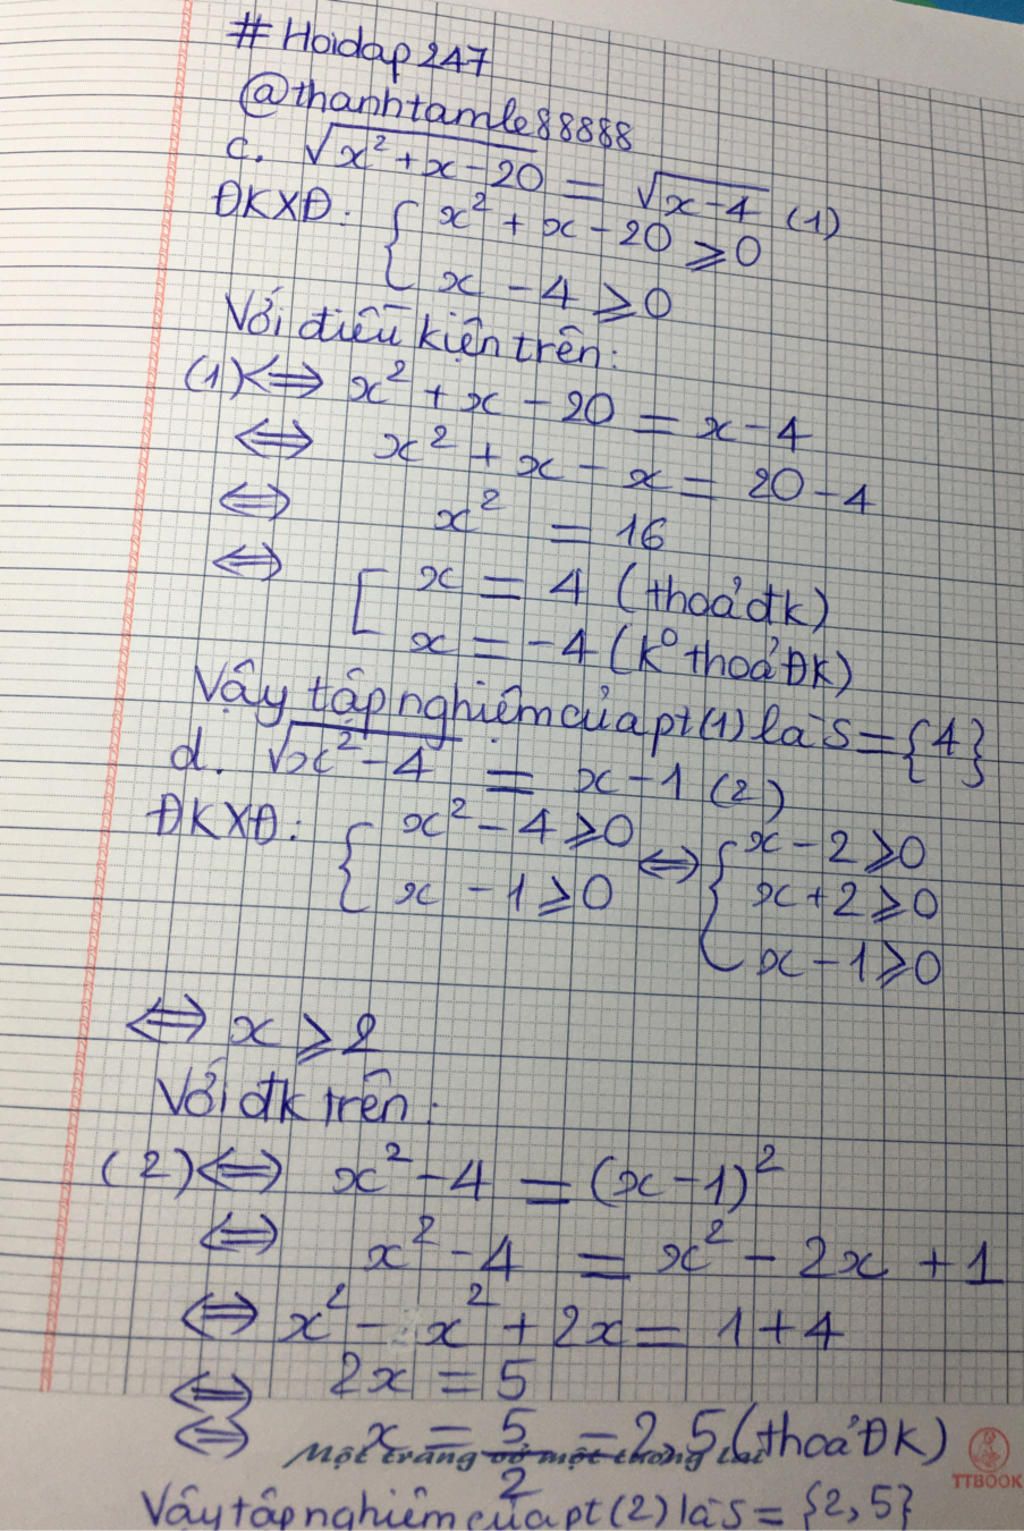 # Hoidap247
@thanhtamle88888
c. √x² + x - 20 = √x - 4 (1)
ĐKXĐ: { x² + x - 20 ⩾ 0
x - 4 ⩾ 0
Với điều kiện trên:
(1) ⇔ x² + x - 20 = x - 4
⇔ x² + x - x = 20 - 4
⇔ x² = 16
⇔ [ x = 4 (thoả đk)
x = -4 (k° thoả ĐK)
Vậy tập nghiệm của pt (1) là S = {4}
d. √x² - 4 = x - 1 (2)
ĐKXĐ: { x² - 4 ⩾ 0 ⇔ { x - 2 ⩾ 0
x - 1 ⩾ 0 x + 2 ⩾ 0
x - 1 ⩾ 0
⇔ x ⩾ 2
Với đk trên:
(2) ⇔ x² - 4 = (x - 1)²
⇔ x² - 4 = x² - 2x + 1
⇔ x² - x² + 2x = 1 + 4
⇔ 2x = 5
⇔ x = 5/2 = 2,5 (thoả ĐK)
Một trang vở một tương lai
TTBOOK
Vậy tập nghiệm của pt (2) là S = {2,5}